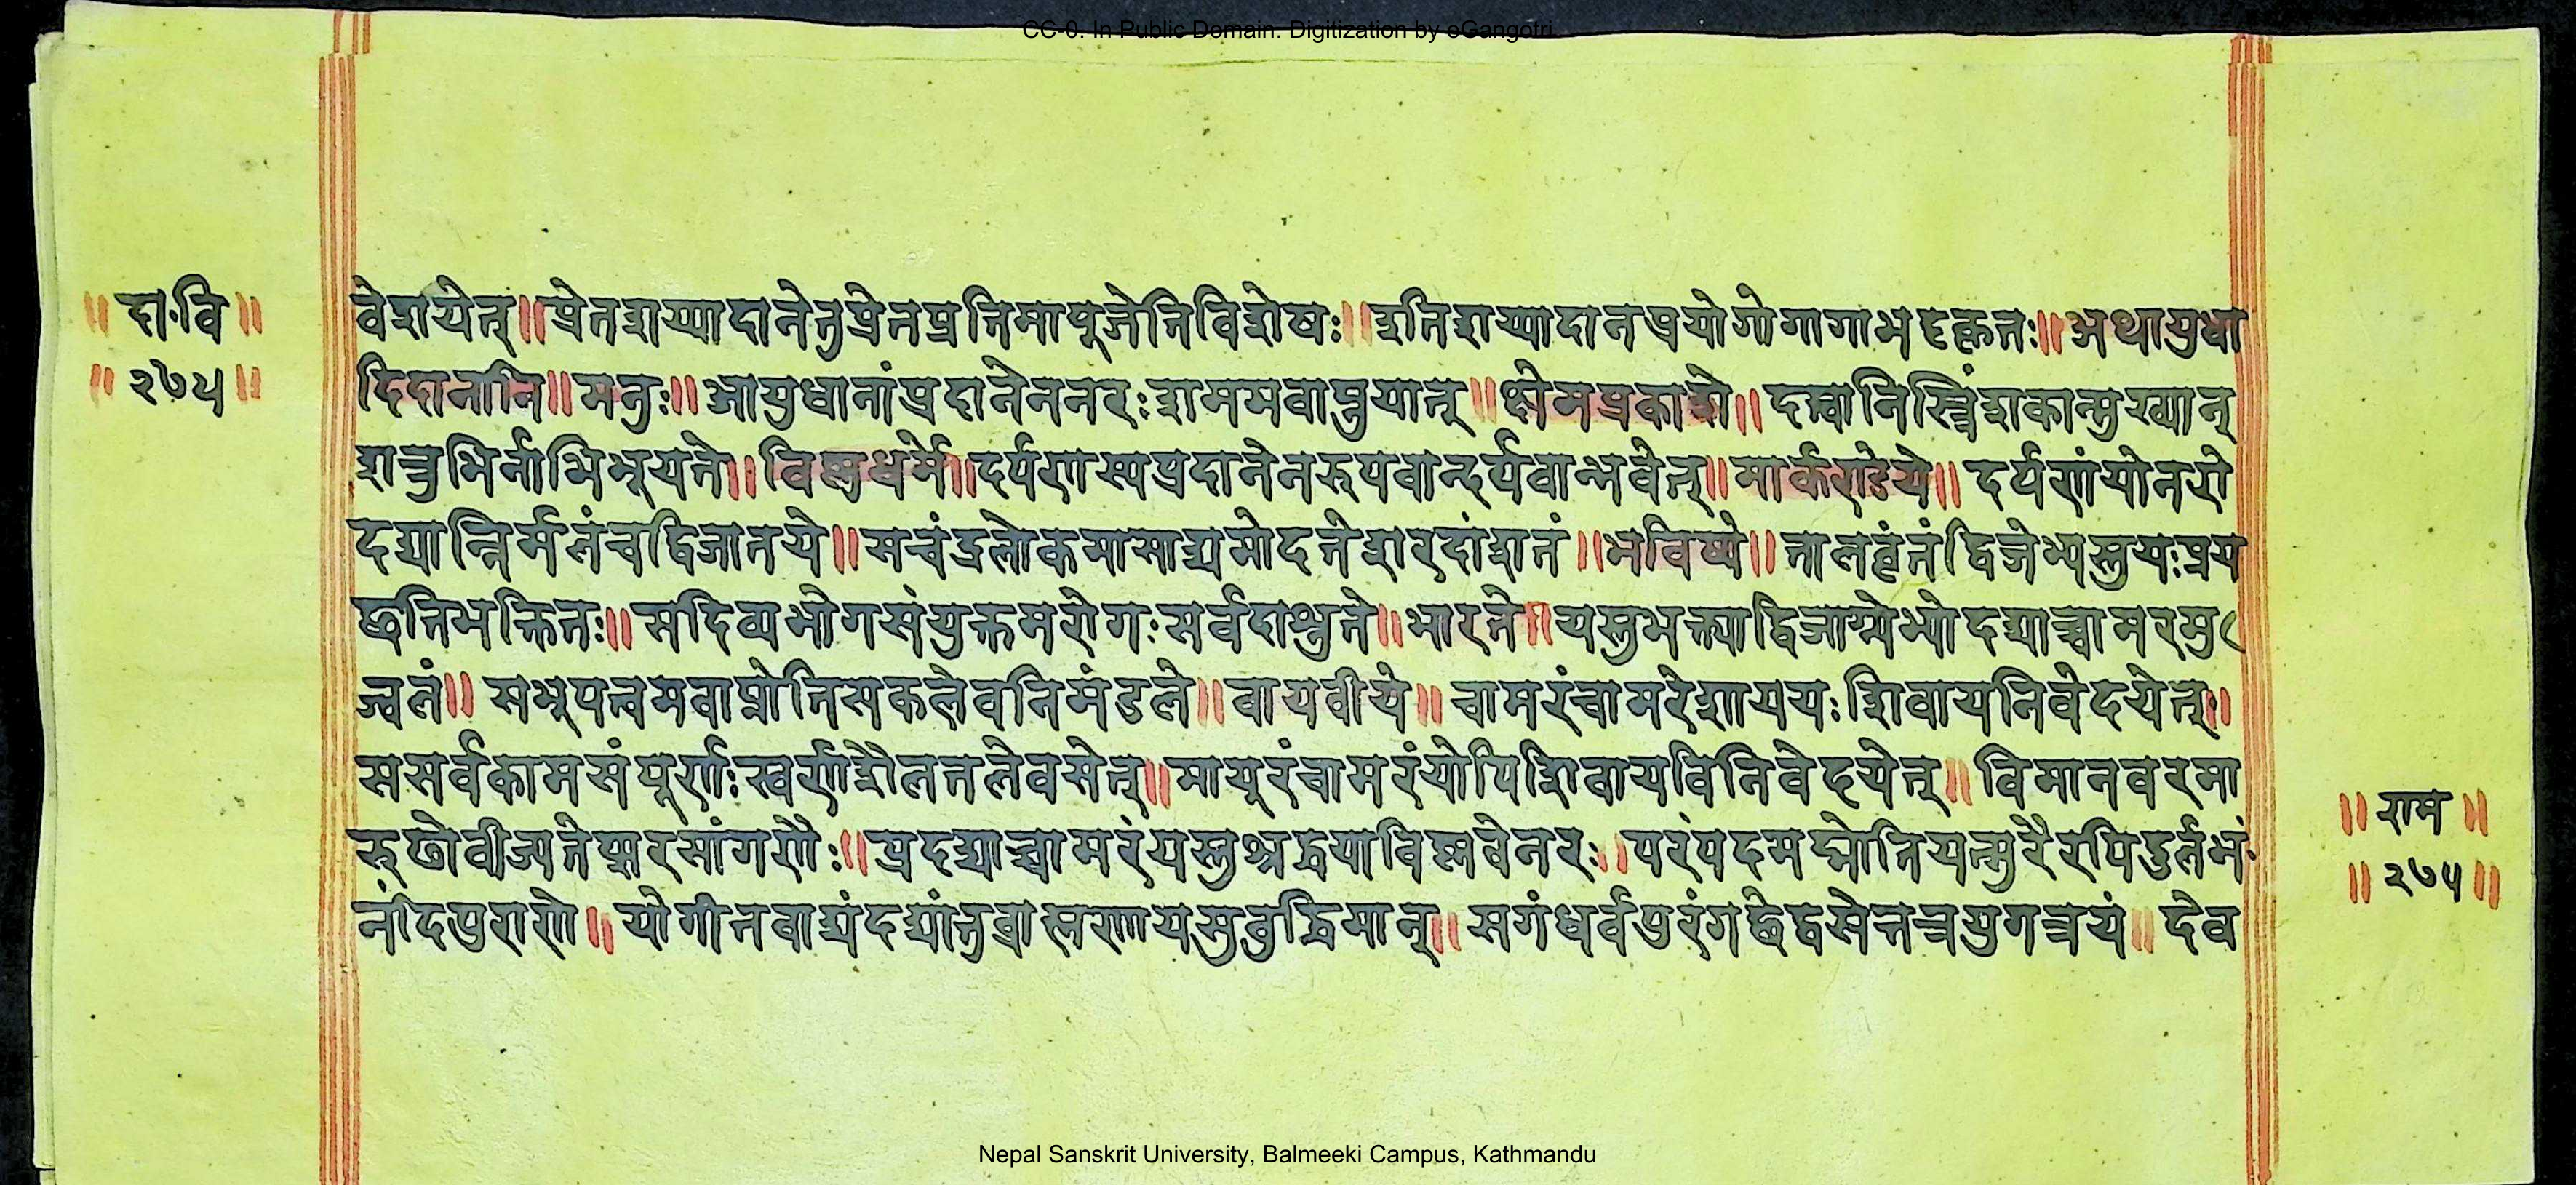 CC-0. In Public Domain. Digitization by eGangotri
॥ दा॰वि ॥
॥ २७५ ॥
वेशयेत् ॥ प्रेतशय्यादानेतुप्रेतप्रतिमापूजेतिविशेषः ॥ इतिशय्यादानप्रयोगोगागाभट्टकृतः ॥ अथायुधा
दिदानानि ॥ मनुः ॥ आयुधानांप्रदानेननरःशममवाप्नुयात् ॥ क्षेमप्रकाशे ॥ दत्त्वानिस्त्रिंशकान्मुख्यान्
शत्रुभिर्नाभिभूयते ॥ विष्णुधर्मे ॥ दर्पणस्यप्रदानेनरुपवान्दर्पवान्भवेत् ॥ मार्कण्डेये ॥ दर्पणंयोनरो
दद्यान्निर्मलंचद्विजातये ॥ सचंद्रलोकमासाद्यमोदतेशरदांशतं ॥ भविष्ये ॥ तालवृंतंद्विजेभ्यस्तुयःप्रय
छतिभक्तितः ॥ सदिव्यभोगसंयुक्तमरोगःसर्वदाश्नुते ॥ भारते ॥ यस्तुभक्त्याद्विजाग्र्येभ्योदद्याच्चामरमु
ज्वलं ॥ सभूपत्वमवाप्नोतिसकलेवनिमंडले ॥ वायवीये ॥ चामरंचामरेशाययः शिवायनिवेदयेत् ॥
ससर्वकामसंपूर्णःस्वर्णशैलतलेवसेत् ॥ मायूरंचामरंयोपिशिवायविनिवेदयेत् ॥ विमानवरमा
रुढोवीज्यतेप्सरसांगणैः ॥ प्रदद्याच्चामरंयस्तुश्रद्धयाविष्णवेनरः ॥ परंपदमवाप्नोतियत्सुरैरपिदुर्लभं
नंदिपुराणे ॥ योगीतवाद्यंदद्यांतुब्राह्मणायस्तुबुद्धिमान् ॥ सगंधर्वपुरंगछेद्वसेत्तत्रयुगत्रयं ॥ देव
॥ राम ॥
॥ २७५ ॥
Nepal Sanskrit University, Balmeeki Campus, Kathmandu